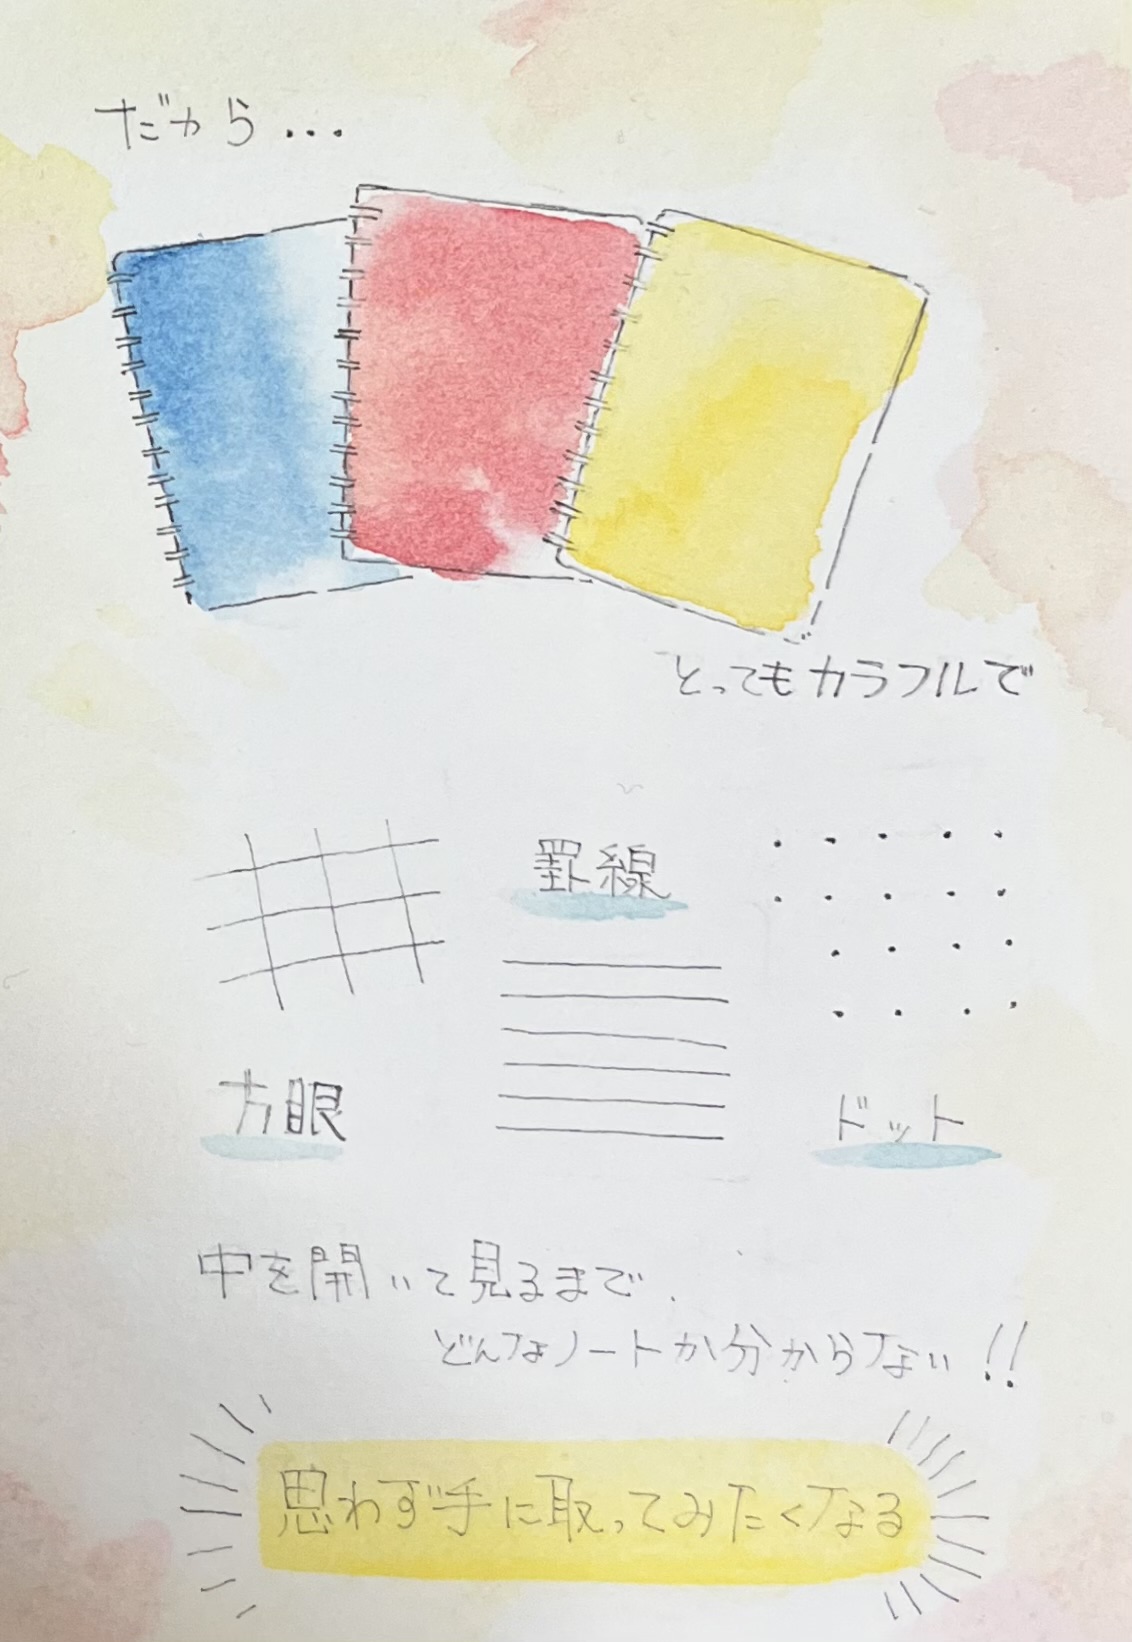 だから...
とってもカラフルで
罫線
方眼
ドット
中を開いて見るまで、
どんなノートか分からない!!
思わず手に取ってみたくなる